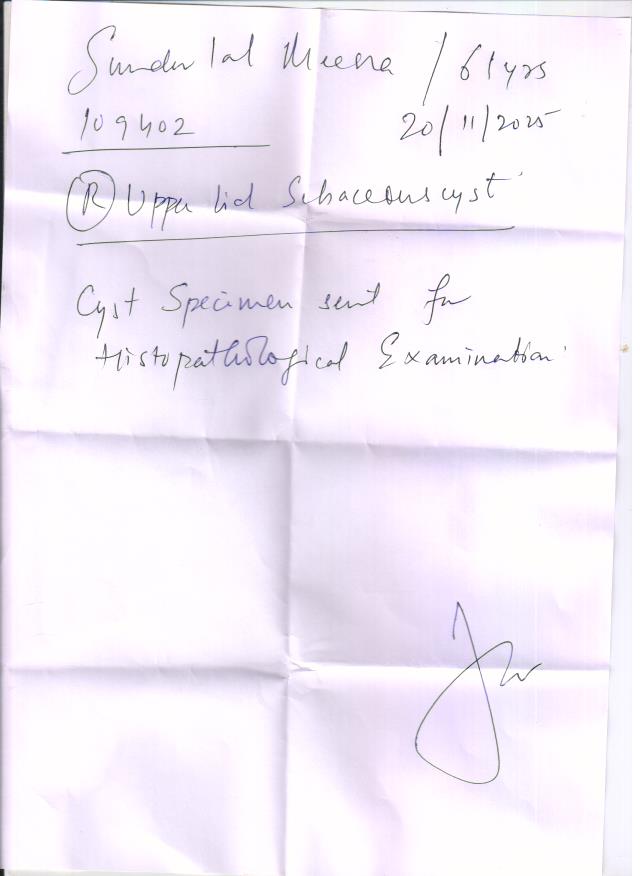 Sunder lal Meena / 61yrs
109402 20/11/2025
(R) Upper lid Sebaceous cyst
Cyst Specimen sent for
Histopathological Examination.